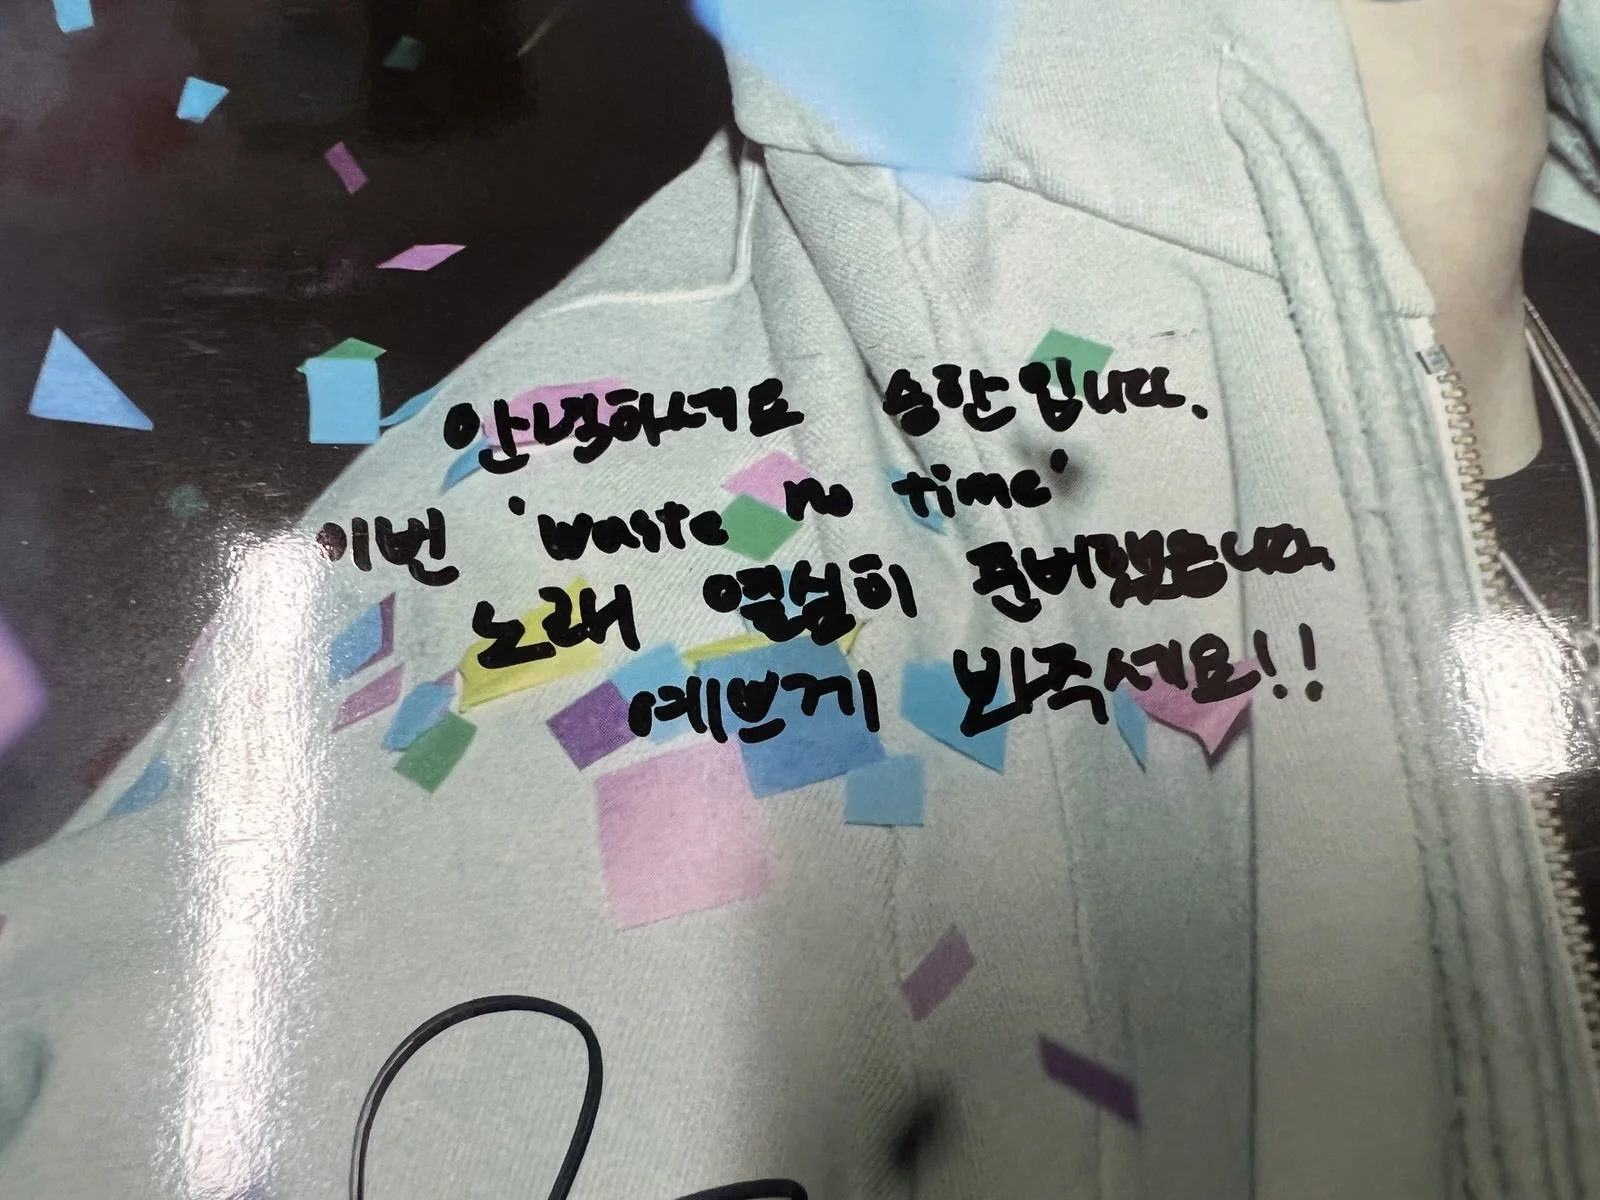 안녕하세요 승한입니다.
이번 'waste no time'
노래 열심히 준비했습니다
예쁘게 봐주세요!!